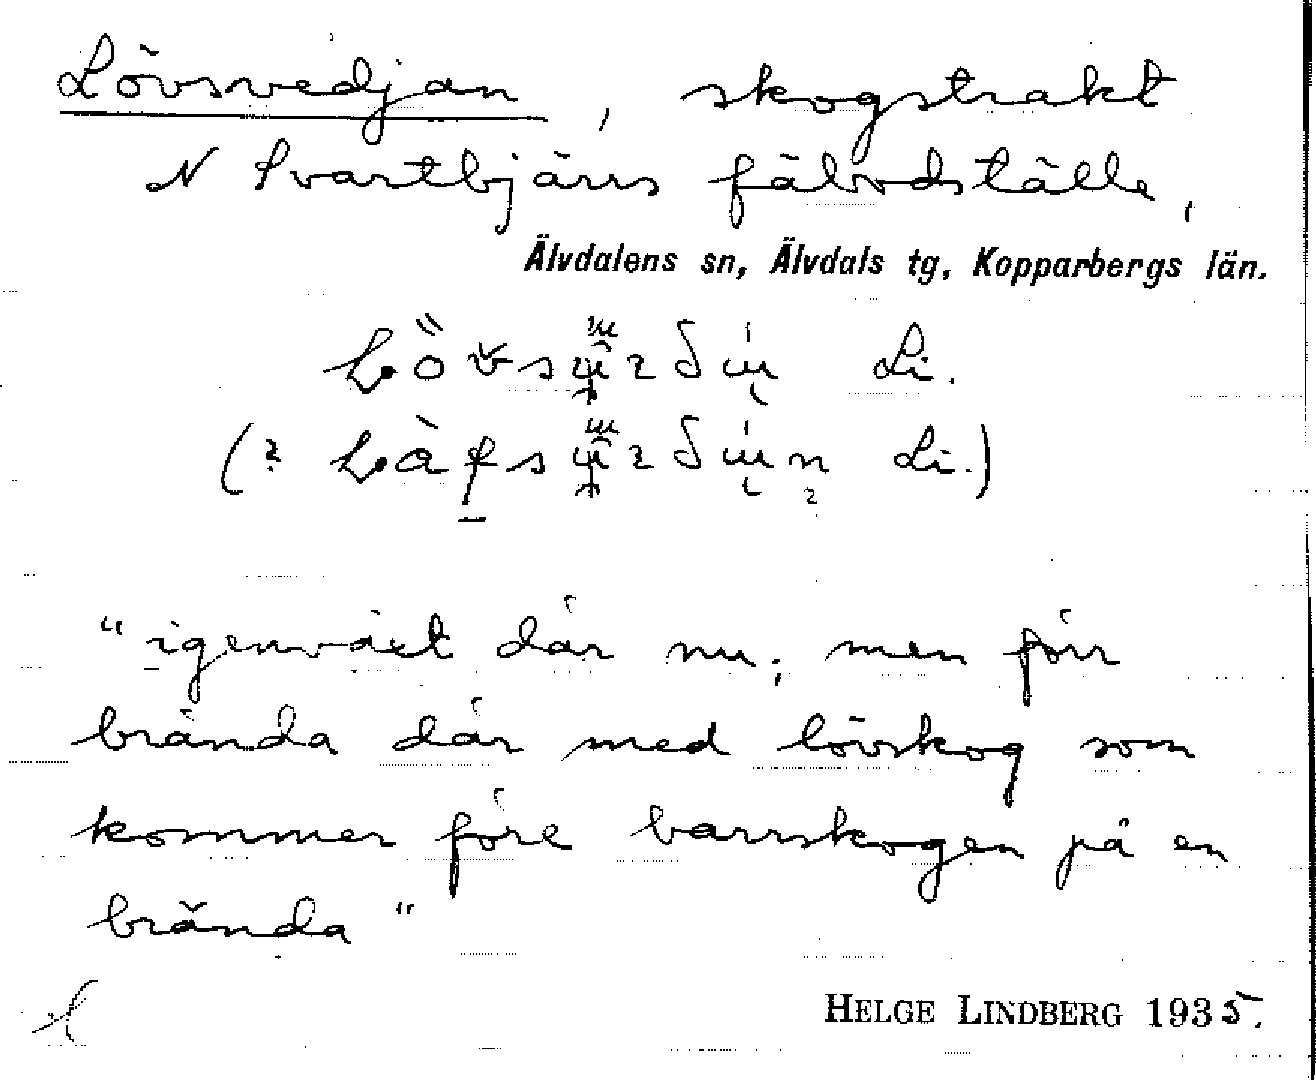 Lövsvedjan, skogstrakt
N Svartbjärs fäbodställe,
Älvdalens sn, Älvdals tg, Kopparbergs län.
Li.
(? Li.)
"igenväxt där nu; men förr
brända där med lövskog som
kommer före barrskogen på en
brända"
HELGE LINDBERG 1935.